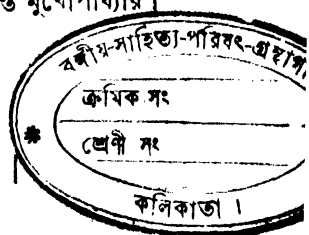 মুখোপাধ্যায়।
বঙ্গীয়-সাহিত্য-পরিষৎ-গ্রন্থাগা
ক্রমিক সং
শ্রেণী সং
কলিকাতা ।